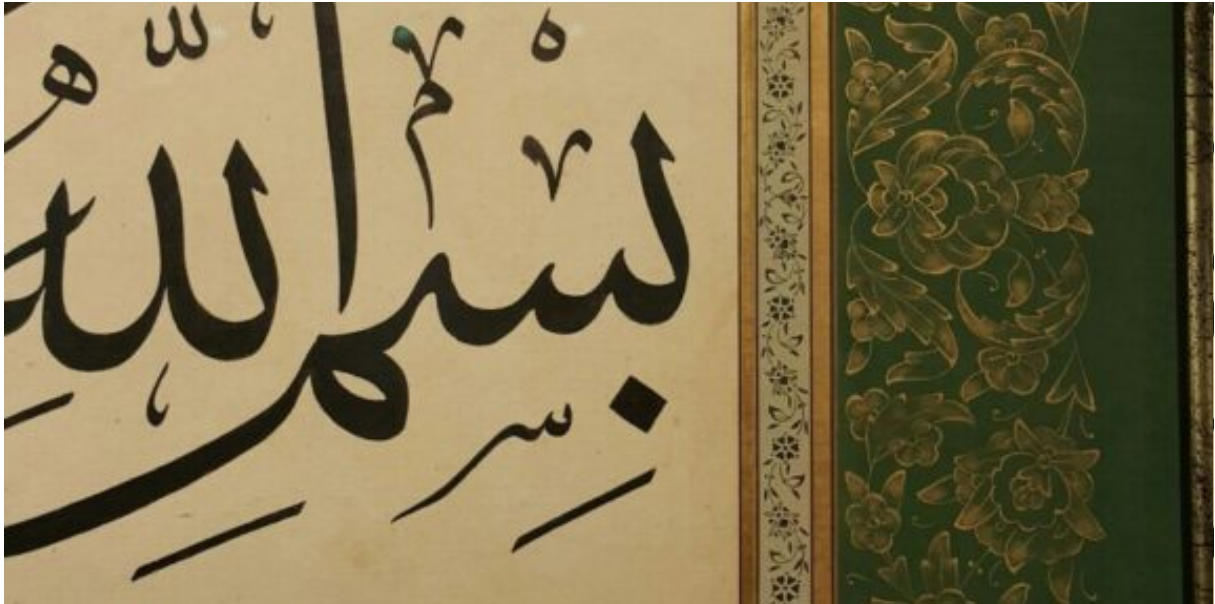 بِسْمِ اللّٰهِ